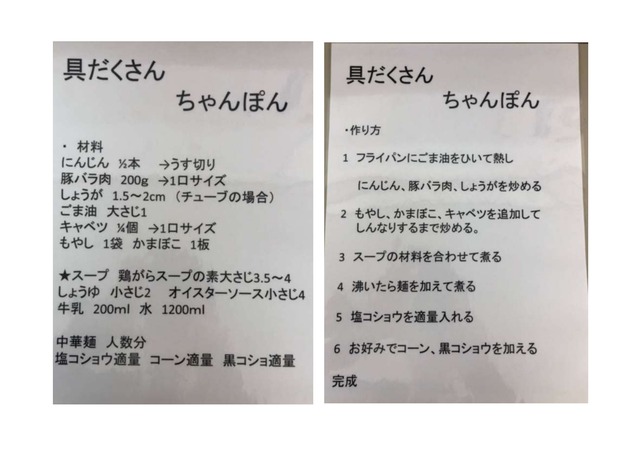 具だくさん
ちゃんぽん
・ 材料
にんじん ½本 →うす切り
豚バラ肉 200g →1口サイズ
しょうが 1.5～2cm （チューブの場合）
ごま油 大さじ1
キャベツ ¼個 →1口サイズ
もやし 1袋 かまぼこ 1板
★スープ 鶏がらスープの素大さじ3.5～4
しょうゆ 小さじ2 オイスターソース小さじ4
牛乳 200ml 水 1200ml
中華麺 人数分
塩コショウ適量 コーン適量 黒コショ適量
具だくさん
ちゃんぽん
・作り方
1 フライパンにごま油をひいて熱し
にんじん、豚バラ肉、しょうがを炒める
2 もやし、かまぼこ、キャベツを追加して
しんなりするまで炒める。
3 スープの材料を合わせて煮る
4 沸いたら麺を加えて煮る
5 塩コショウを適量入れる
6 お好みでコーン、黒コショウを加える
完成